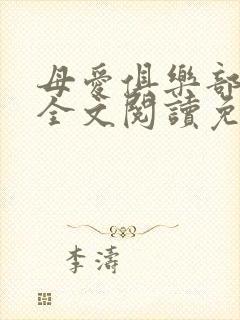 母愛俱樂部
全文閱讀免
李濤